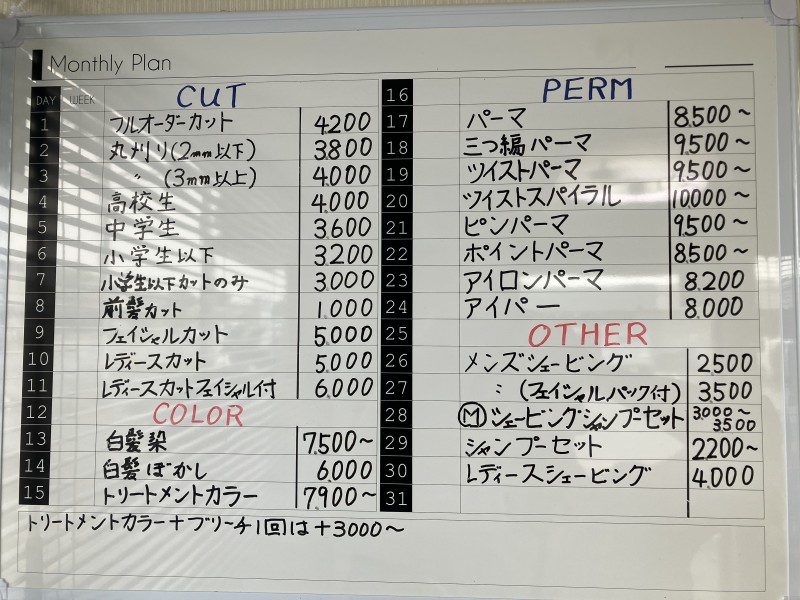 Monthly Plan
DAY WEEK CUT
1 フルオーダーカット 4200
2 丸刈り(2mm以下) 3.800
3 〃 (3mm以上) 4.000
4 高校生 4.000
5 中学生 3600
6 小学生以下 3200
7 小学生以下カットのみ 3.000
8 前髪カット 1.000
9 フェイシャルカット 5.000
10 レディースカット 5.000
11 レディースカットフェイシャル付 6.000
12 COLOR
13 白髪染 7.500～
14 白髪ぼかし 6.000
15 トリートメントカラー 7900～
16 PERM
17 パーマ 8.500～
18 三つ編パーマ 9.500～
19 ツイストパーマ 9.500～
20 ツイストスパイラル 10.000～
21 ピンパーマ 9.500～
22 ポイントパーマ 8.500～
23 アイロンパーマ 8.200
24 アイパー 8.000
25 OTHER
26 メンズシェービング 2.500
27 〃 (フェイシャルパック付) 3.500
28 Ⓜシェービングシャンプーセット 3000～3500
29 シャンプーセット 2200～
30 レディースシェービング 4.000
31
トリートメントカラー+ブリーチ1回は+3000～